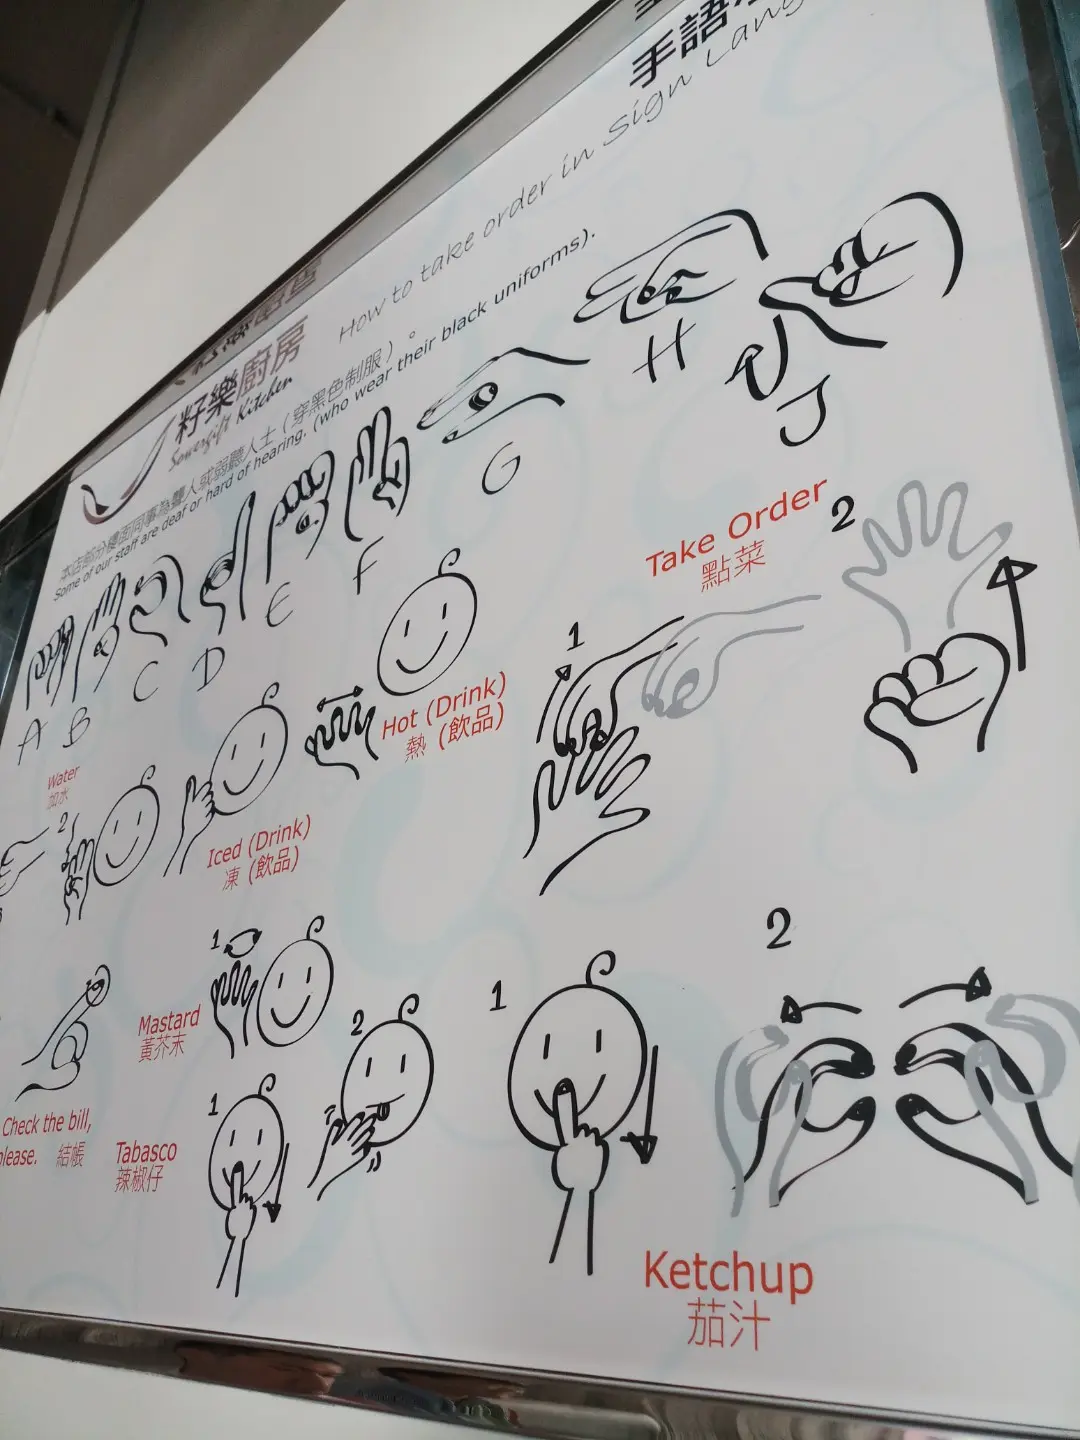 手語
How to take order in Sign Lang
籽樂廚房
Sowergift Kitchen
本店部分樓面同事為聾人或弱聽人士（穿黑色制服）。
Some of our staff are deaf or hard of hearing. (who wear their black uniforms).
A
B
C
D
E
F
G
H
J
Water
加水
2
Iced (Drink)
凍 (飲品)
Hot (Drink)
熱 (飲品)
Take Order
點菜
1
2
Check the bill,
please. 結帳
Mastard
黃芥末
1
2
Tabasco
辣椒仔
1
1
2
Ketchup
茄汁